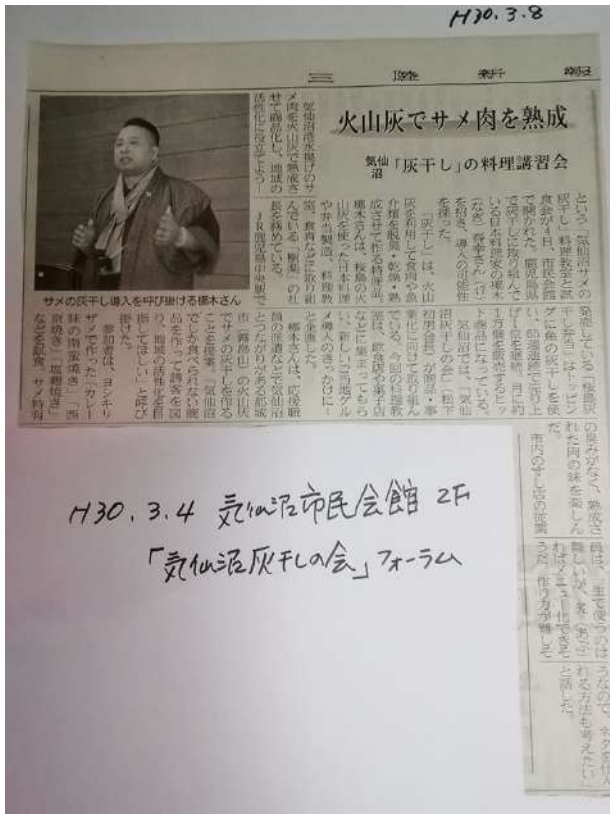 H30.3.8
三陸新報
火山灰でサメ肉を熟成
気仙沼「灰干し」の料理講習会
サメの灰干し導入を呼び掛ける梛木さん
気仙沼港水揚げのサ
メ肉を火山灰で熟成さ
せて商品化し、地域の
活性化に役立てよう―
という「気仙沼サメの
灰干し」料理教室と試
食会が4日、市民会館
で開かれた。鹿児島県
で灰干しに取り組んで
いる日本料理家の梛木
春幸さん
を招き、導入の可能性
を探った。
「灰干し」は、火山
灰を利用して食肉や魚
介類を脱臭・乾燥・熟
成させて作る特産品。
梛木さんは、桜島の火
山灰を使った日本料理
や弁当製造、料理教
室、食育などに取り組
んでいる「樹楽」の社
長を務めている。
JR鹿児島中央駅で
発売している「桜島灰
干し弁当」はトッピン
グに魚の灰干しを使
い、65週連続で売り上
げ1位を継続。月に約
1万個を販売するヒッ
ト商品になっている。
気仙沼では、「気仙
沼灰干しの会」(松下
初男会長)が商品・事
業化に向けて取り組ん
でいる。今回の料理教
室は、飲食店や菓子店
などに集まってもら
い、新しいご当地グル
メ導入のきっかけに―
と企画した。
梛木さんは、応援職
員の派遣などで気仙沼
とつながりがある都城
市(霧島山)の火山灰
でサメの灰干しを作る
ことを提案。「気仙沼
でしか食べられない商
品を作って誘客を図
り、地域の活性化を目
指してほしい」と呼び
掛けた。
参加者は、ヨシキリ
ザメで作った「カレー
味の南蛮焼き」「西
京焼き」「塩麹焼き」
などを試食。サメ特有
の臭みがなく、熟成さ
れた肉の味を楽しん
だ。
市内のすし店の従業
員は、「生で使うのは
難しいが、炙(あぶ)
ればメニュー化できそ
うだ。作り方が難しそ
うなので、ネタを仕入
れる方法も考えたい」
と話した。
H30.3.4 気仙沼市民会館 2F
「気仙沼灰干しの会」フォーラム